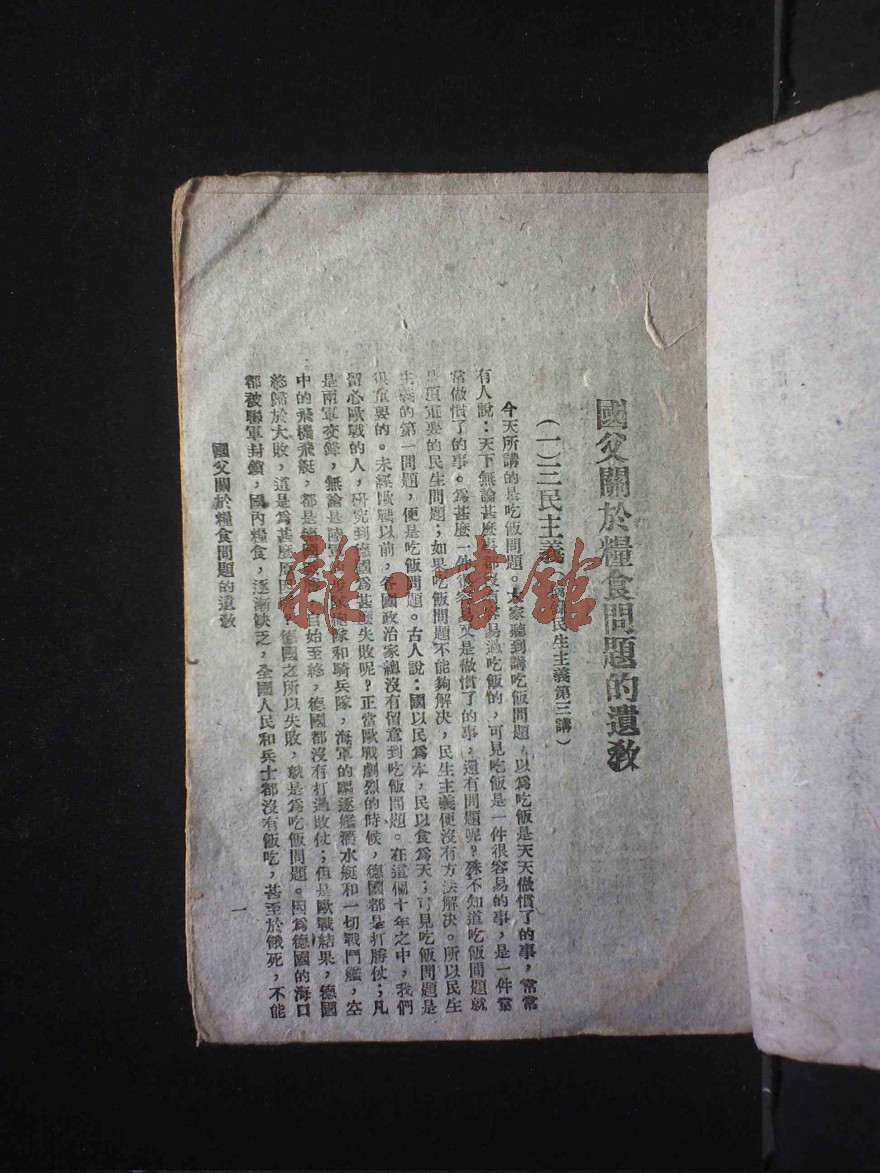 國父關於糧食問題的遺敎
(一)三民主義 民生主義第三講)
今天所講的是吃飯問題。大家聽到講吃飯問題,以爲吃飯是天天做慣了的事,常常
有人說:天下無論甚麼 都沒有 易過吃飯的,可見吃飯是一件很容易的事,是一件常
常做慣了的事。爲甚麼一件很容易又是做慣了的事,還有問題呢?殊不知道吃飯問題就
是頂重要的民生問題;如果吃飯問題不能夠解決,民生主義便沒有方法解決。所以民生
主義的第一問題,便是吃飯問題。古人說:國以民爲本,民以食爲天;可見吃飯問題是
很重要的。未經歐戰以前,各國政治家總沒有留意到吃飯問題。在這個十年之中,我們
留心歐戰的人,研究到德國爲甚麼失敗呢?正當歐戰劇烈的時候,德國都是打勝仗;凡
是兩軍交鋒,無論是陸軍 步隊砲隊和騎兵隊,海軍的驅逐艦潛水艇和一切戰鬥艦,空
中的飛機飛艇,都是德國 自始至終,德國都沒有打過敗仗;但是歐戰結果,德國
終歸於大敗,這是爲甚麼原因 德國之所以失敗,就是爲吃飯問題。因爲德國的海口
都被聯軍封鎖,國內糧食,逐漸缺乏,全國人民和兵士都沒有飯吃,甚至於餓死,不能
國父關於糧食問題的遺敎
一
雜·書館